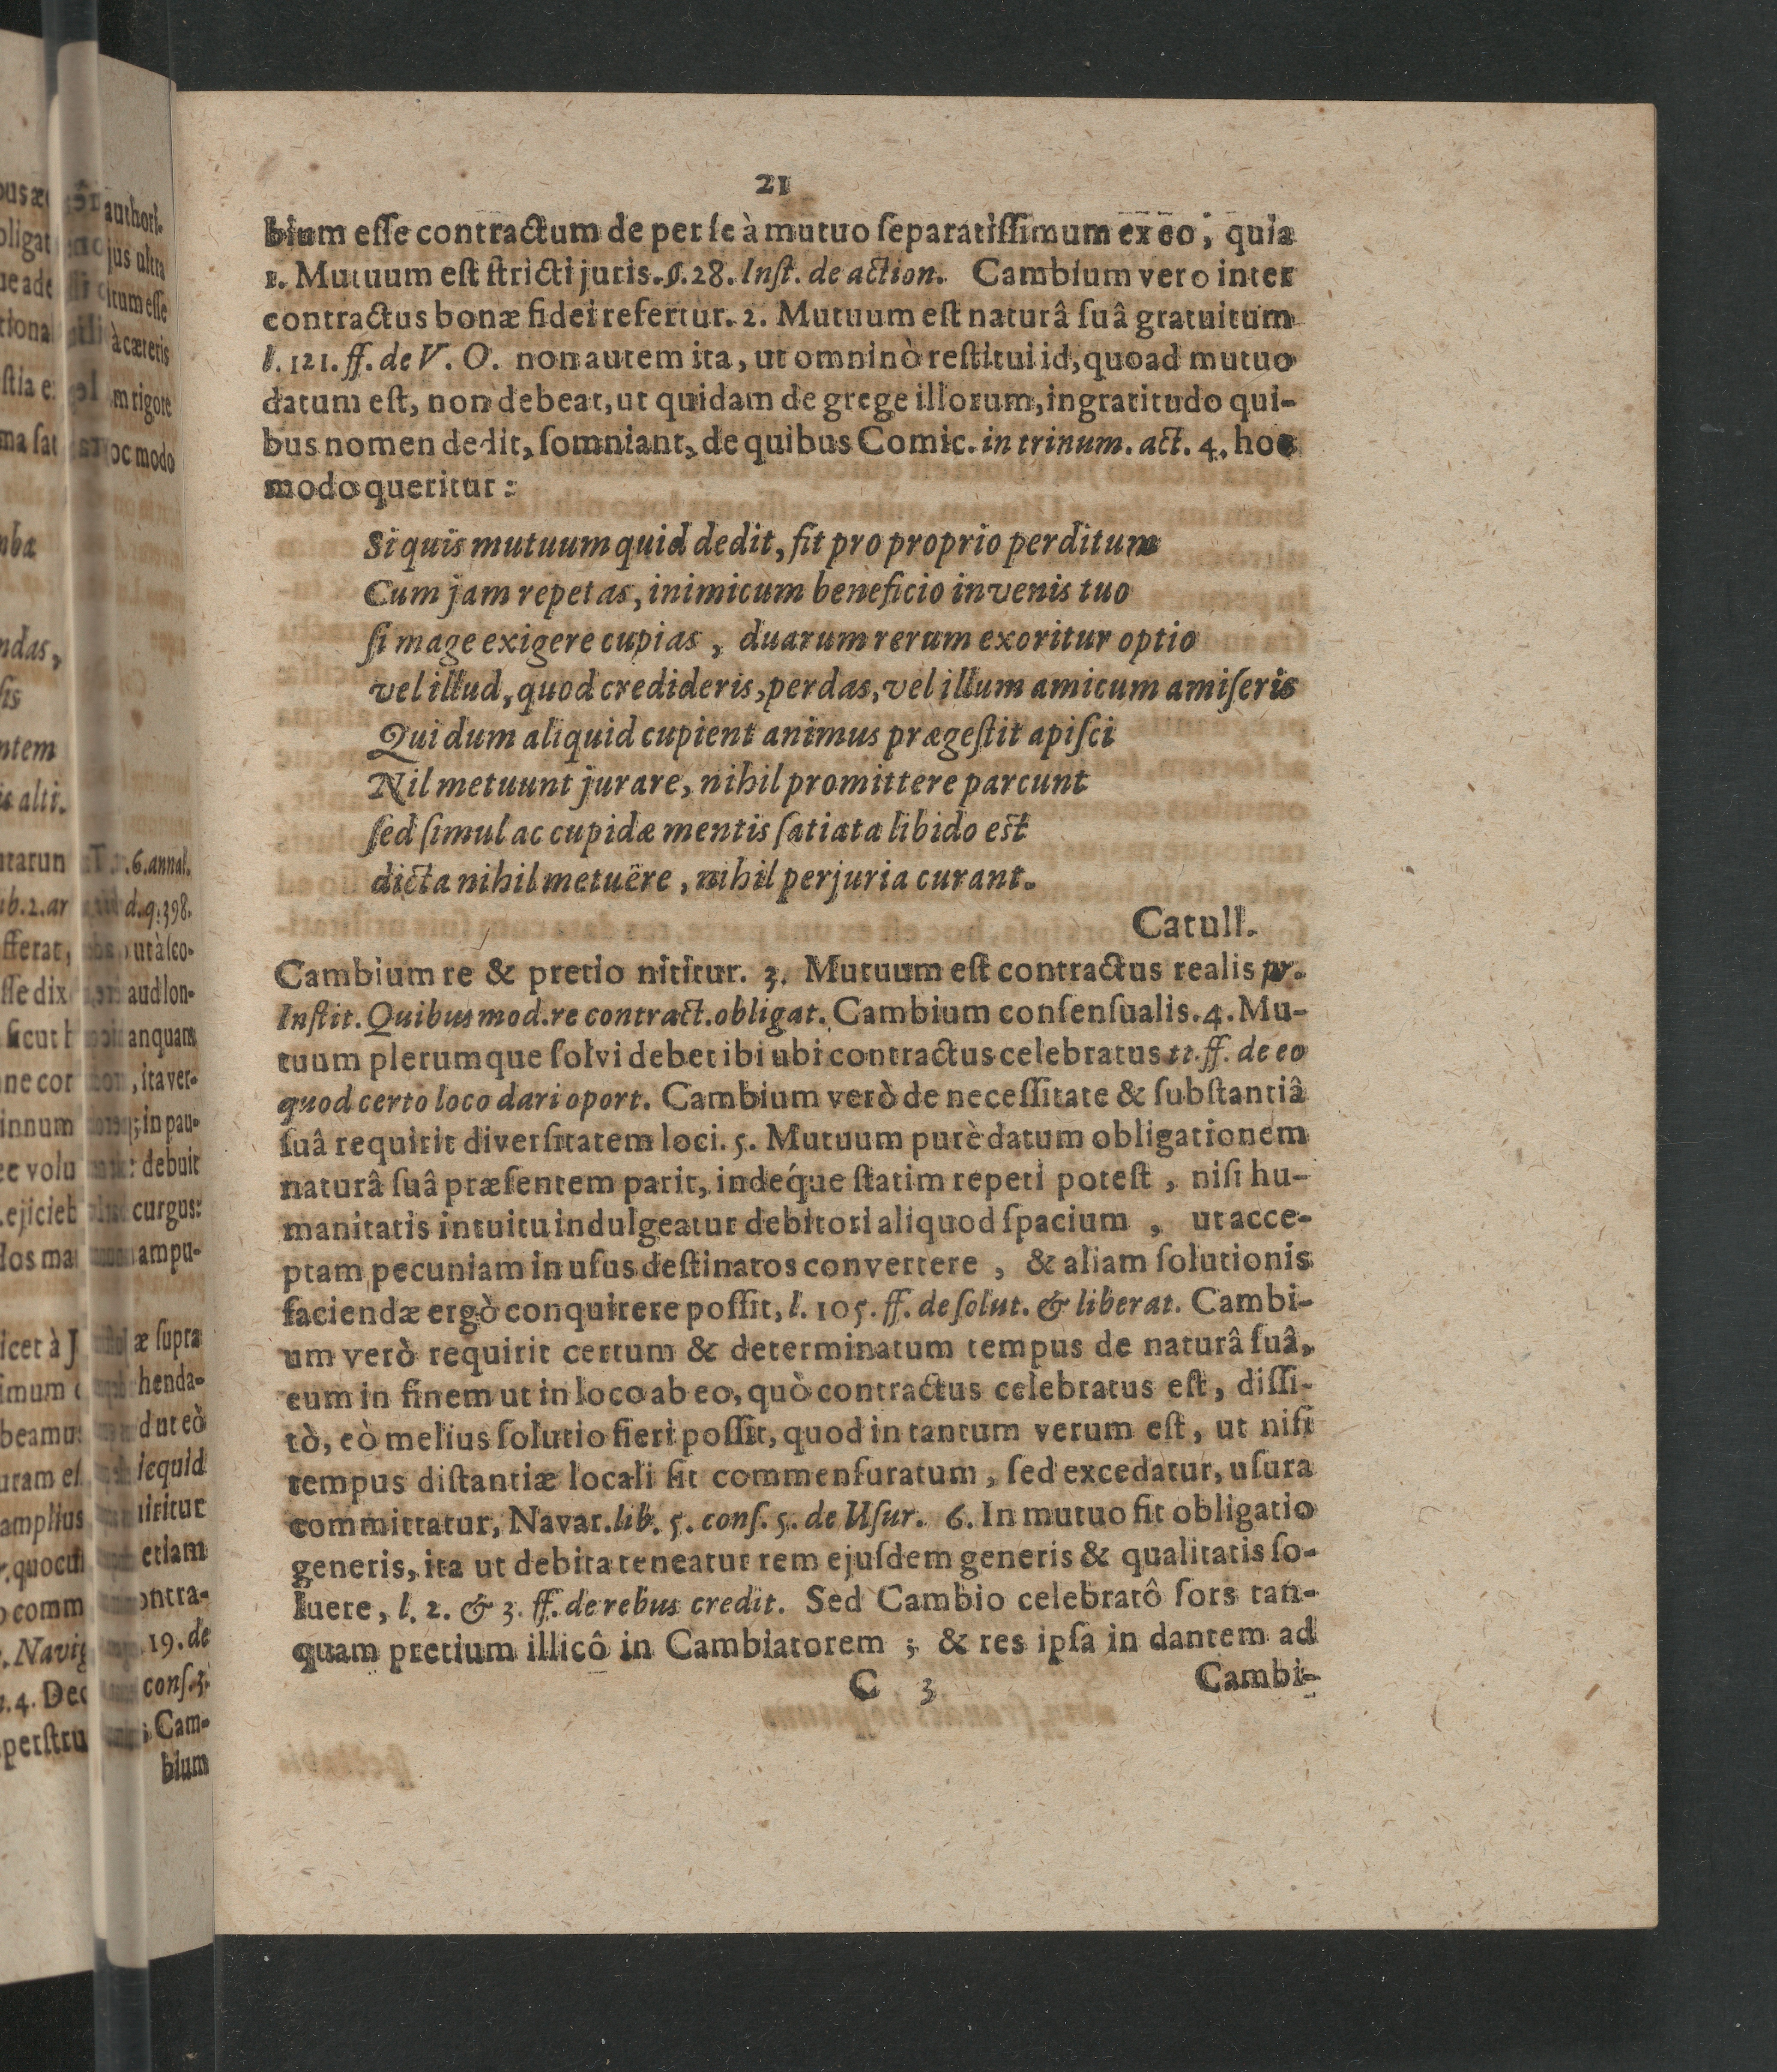 21
bium eſſe contractum de per ſe à mutuo ſeparatiſſimum ex eo, quia
1. Mutuum eſt ſtricti juris. §. 28. Inſt. de action. Cambium vero inter
contractus bonæ fidei refertur. 2. Mutuum eſt naturâ ſuâ gratuitum
l. 121. ff. de V. O. non autem ita, ut omninò reſtitui id, quoad mutuo
datum eſt, non debeat, ut quidam de grege illorum, ingratitudo qui-
bus nomen dedit, ſomniant, de quibus Comic. in trinum. act. 4. hoc
modo queritur:
Si quis mutuum quid dedit, fit pro proprio perditum
Cum jam repetas, inimicum beneficio invenis tuo
ſi mage exigere cupias, duarum rerum exoritur optio
vel illud, quod credideris, perdas, vel illum amicum amiſeris
Qui dum aliquid cupient animus prægeſtit apiſci
Nil metuunt jurare, nihil promittere parcunt
ſed ſimul ac cupidæ mentis ſatiata libido eſt
dicta nihil metuêre, nihil perjuria curant.
Catull.
Cambium re & pretio nititur. 3. Mutuum eſt contractus realis pr.
Inſtit. Quibus mod. re contract. obligat. Cambium conſenſualis. 4. Mu-
tuum plerumque ſolvi debet ibi ubi contractus celebratus tt. ff. de eo
quod certo loco dari oport. Cambium verò de neceſſitate & ſubſtantiâ
ſuâ requirit diverſitatem loci. 5. Mutuum purè datum obligationem
naturâ ſuâ præſentem parit, indéque ſtatim repeti poteſt, niſi hu-
manitatis intuitu indulgeatur debitori aliquod ſpacium, ut acce-
ptam pecuniam in uſus deſtinatos convertere, & aliam ſolutionis
faciendæ ergò conquirere poſſit, l. 105. ff. de ſolut. & liberat. Cambi-
um verò requirit certum & determinatum tempus de naturâ ſuâ,
eum in finem ut in loco ab eo, quò contractus celebratus eſt, diſſi-
tò, eò melius ſolutio fieri poſſit, quod in tantum verum eſt, ut niſi
tempus diſtantiæ locali ſit commenſuratum, ſed excedatur, uſura
committatur, Navar. lib. 5. conſ. 5. de Uſur. 6. In mutuo fit obligatio
generis, ita ut debita teneatur rem ejuſdem generis & qualitatis ſo-
luere, l. 2. & 3. ff. de rebus credit. Sed Cambio celebratô ſors tan-
quam pretium illicô in Cambiatorem; & res ipſa in dantem ad
C 3
Cambi-